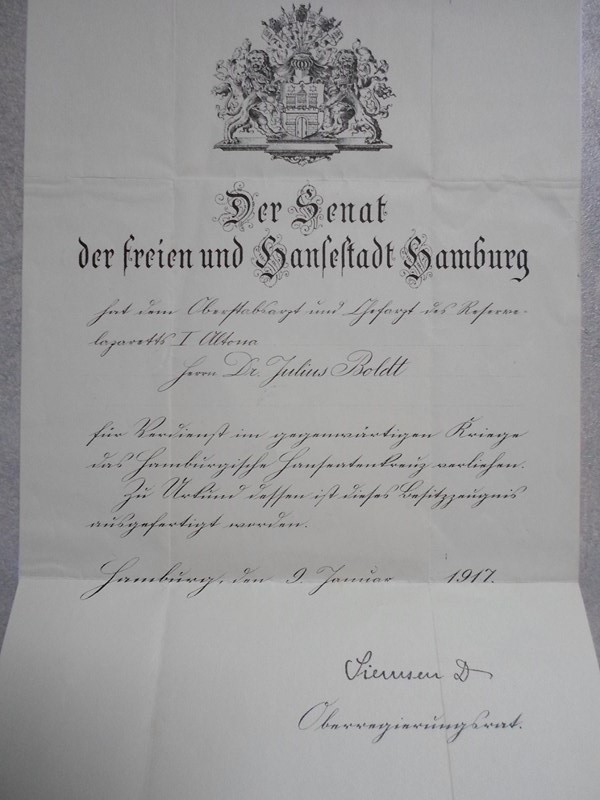 Der Senat
der freien und Hansestadt Hamburg
hat dem Oberstabsarzt und Chefarzt des Reserve-
lazaretts I Altona
Herrn Dr. Julius Boldt
für Verdienst im gegenwärtigen Kriege
das Hamburgische Hanseatenkreuz verliehen.
Zu Urkund dessen ist dieses Besitzzeugnis
ausgefertigt worden.
Hamburg, den 9. Januar 1917.
Siemsen D
Oberregierungsrat.